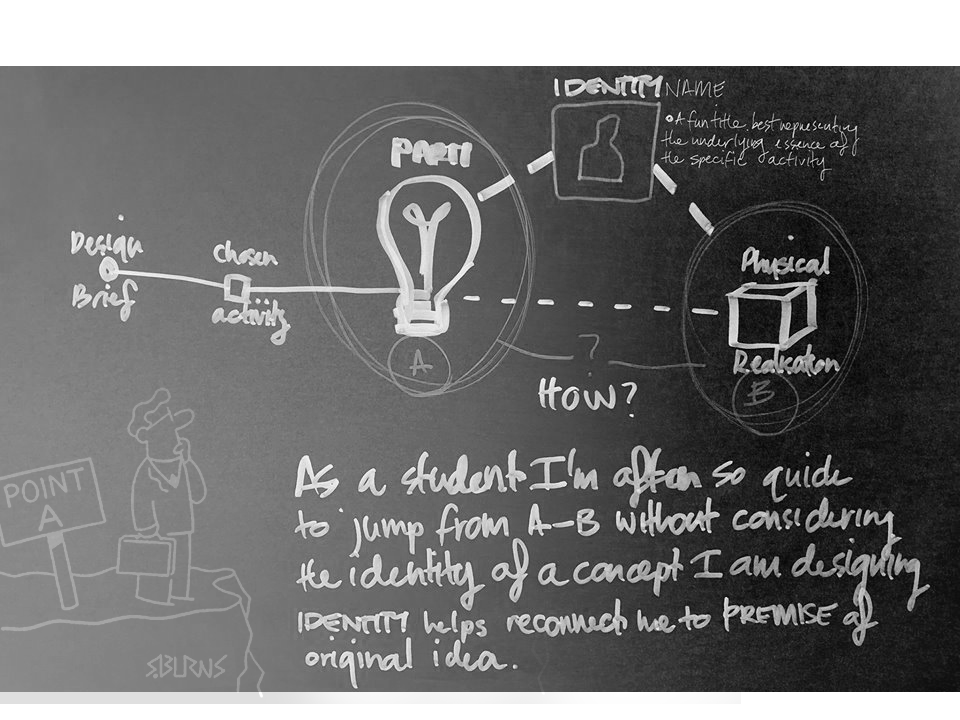 IDENTITY NAME
• A fun title best representing
the underlying essence of
the specific activity
PARTI
Design
Brief
Chosen
activity
Physical
Realisation
A
?
B
HOW?
As a student I'm often so quick
to jump from A-B without considering
the identity of a concept I am designing
IDENTITY helps reconnect me to PREMISE of
original idea.
POINT
A
S.BURNS